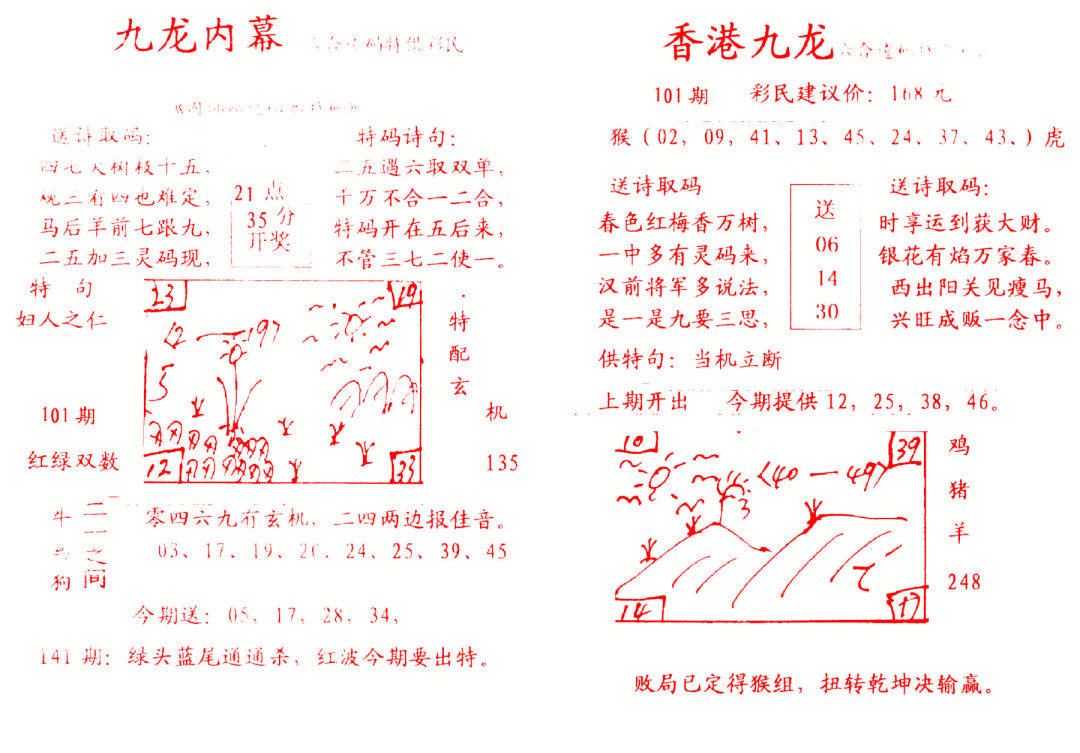 九龙内幕
送诗取码：
四七大树枝十五，
观三看四也难定，
马后羊前七跟九，
二五加三灵码现，
21点
35分
开奖
特码诗句：
二五遇六取双单，
千万不合一二合，
特码开在五后来，
不管三七二使一。
特句
妇人之仁
101期
红绿双数
23
19
12—19
5
12
33
·特配玄机
135
牛
狗
二二之间
零四六九有玄机，二四两边报佳音。
03、17、19、20、24、25、39、45
今期送：05，17，28，34，
141期：绿头蓝尾通通杀，红波今期要出特。
香港九龙
101期 彩民建议价：168元
猴（02，09，41，13，45，24，37，43，）虎
送诗取码
春色红梅香万树，
一中多有灵码来，
汉前将军多说法，
是一是九要三思，
送
06
14
30
送诗取码：
时享运到获大财。
银花有焰万家春。
西出阳关见瘦马，
兴旺成贩一念中。
供特句：当机立断
上期开出 今期提供12，25，38，46。
10
39
40—49
3
14
17
鸡
猪
羊
248
败局已定得猴组，扭转乾坤决输赢。